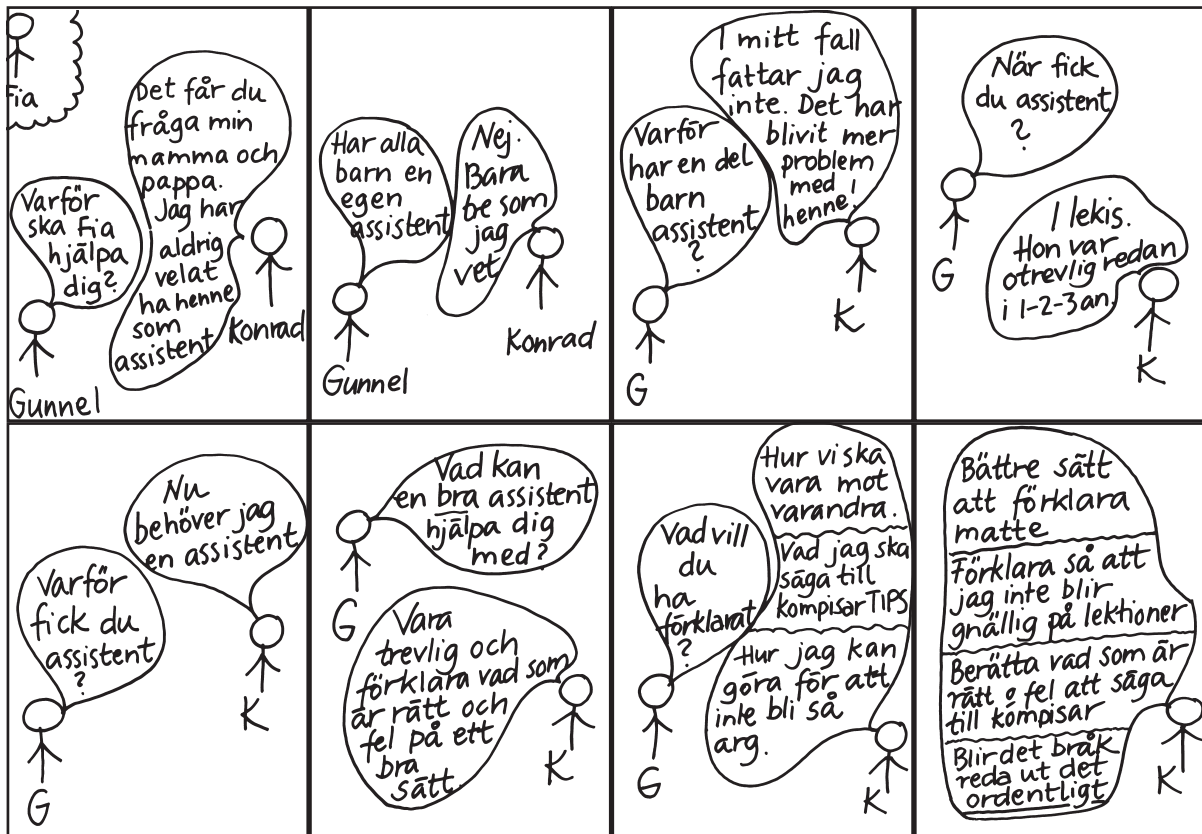 Fia
Varför
ska Fia
hjälpa
dig?
Det får du
fråga min
mamma och
pappa.
Jag har
aldrig
velat
ha henne
som
assistent
Gunnel
Konrad
Har alla
barn en
egen
assistent
Nej.
Bara
be som
jag
vet
Gunnel
Konrad
Varför
har en del
barn
assistent
?
I mitt fall
fattar jag
inte. Det har
blivit mer
problem
med
henne!
G
K
När fick
du assistent
?
I lekis.
Hon var
otrevlig redan
i 1-2-3an.
G
K
Varför
fick du
assistent
?
Nu
behöver jag
en assistent
G
K
Vad kan
en bra assistent
hjälpa dig
med?
Vara
trevlig och
förklara vad som
är rätt och
fel på ett
bra
sätt.
G
K
Vad vill
du
ha
förklarat
?
Hur vi ska
vara mot
varandra.
Vad jag ska
säga till
kompisar TIPS
Hur jag kan
göra för att
inte bli så
arg.
G
K
Bättre sätt
att förklara
matte
Förklara så att
jag inte blir
gnällig på lektioner
Berätta vad som är
rätt o fel att säga
till kompisar
Blir det bråk
reda ut det
ordentligt
K